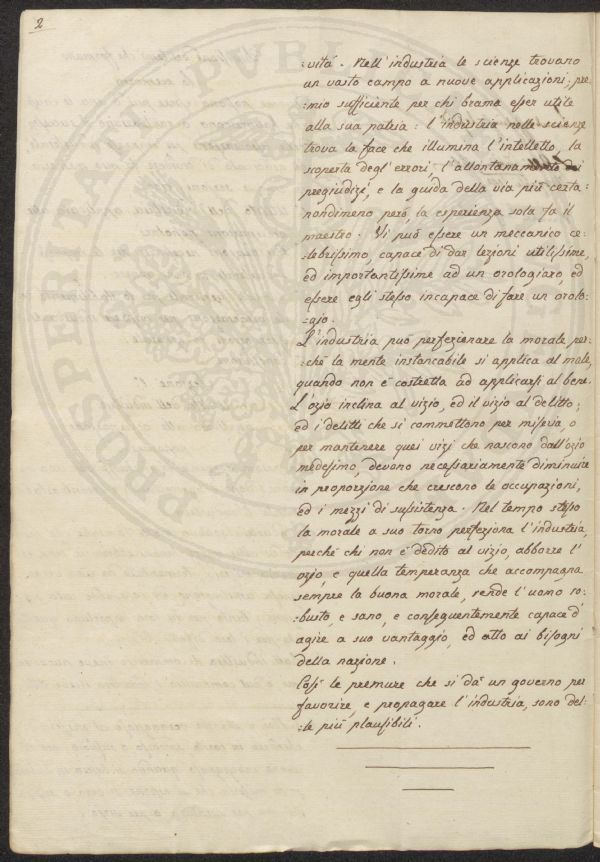 2
:vità. Nell'industria le scienze trovano
un vasto campo a nuove applicazioni; pre-
mio sufficiente per chi brama esser utile
alla sua patria: l'industria nelle scienze
trova la face che illumina l'intelletto, la
scoperta degl'errori, l'allontanamento dei
pregiudizi, e la guida della via più certa.
nondimeno però, la esperienza sola fa il
maestro. Vi può essere un meccanico ce-
:lebrissimo, capace di dar lezioni utilissime,
ed importantissime ad un orologiaro, ed
essere egli stesso incapace di fare un orolo-
:gio.
L'industria può perfezionare la morale per-
:chè la mente instancabile si applica al male,
quando non è costretta ad applicarsi al bene.
L'ozio inclina al vizio, ed il vizio al delitto;
ed i delitti che si commettono per miseria, o
per mantenere quei vizi che nascono dall'ozio
medesimo, devono necessariamente diminuire
in proporzione che crescono le occupazioni,
ed i mezzi di susistenza. Nel tempo stesso
la morale a suo torno perfeziona l'industria,
perchè chi non è dedito al vizio, abborre l'
ozio, e quella temperanza che accompagna
sempre la buona morale, rende l'uomo ro-
:busto, e sano, e conseguentemente capace d'
agire a suo vantaggio, ed atto ai bisogni
della nazione.
Così le premure che si dà un governo per
favorire, e propagare l'industria, sono del-
:le più plausibili.